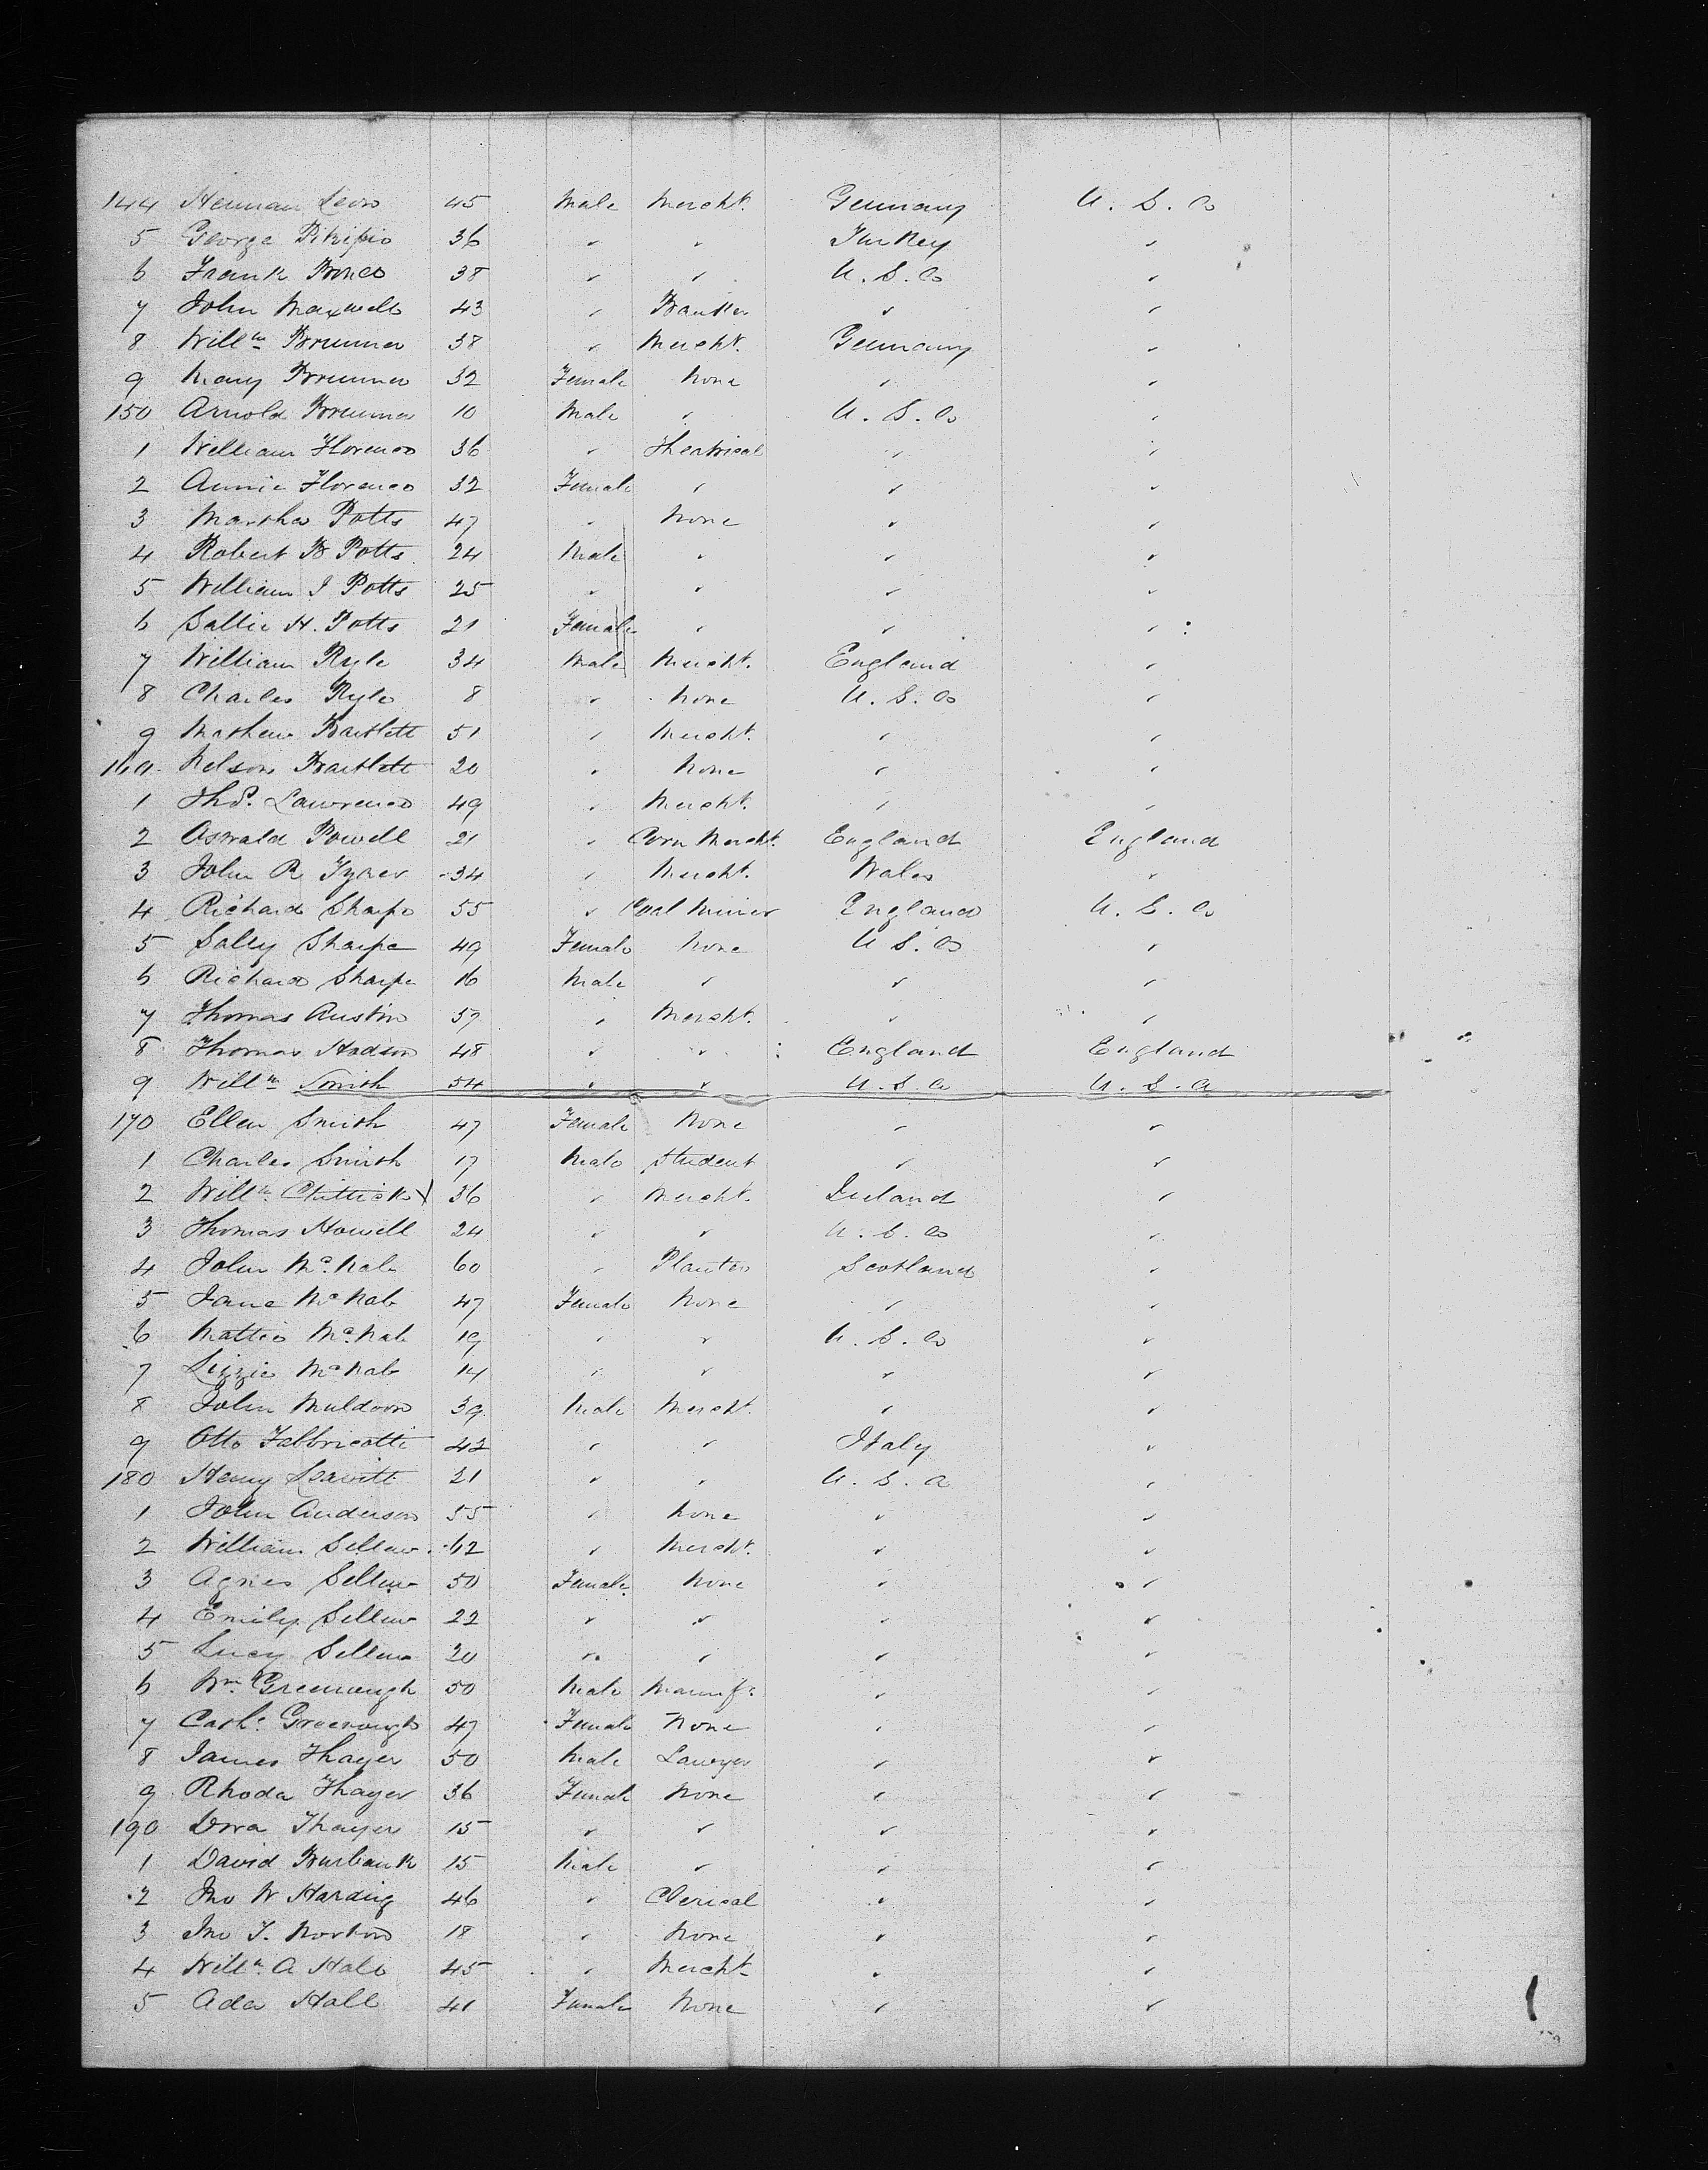 144 Herman Levis 45 Male Mercht. Germany U. S. A
5 George 36 " " Turkey "
6 Frank 38 " " U. S. A "
7 John Maxwell 43 " Banker " "
8 Willm Brunner 38 " Mercht. Germany "
9 Mary Brunner 32 Female None " "
150 Arnold Brunner 10 Male " U. S. A "
1 William Florence 36 " Theatrical " "
2 Annie Florence 32 Female " " "
3 Martha Potts 47 " None " "
4 Robert B Potts 24 Male " " "
5 William J Potts 25 " " " "
6 Sallie H. Potts 21 Female " " "
7 William Ryle 34 Male Mercht. England "
8 Charles Ryle 8 " None U. S. A "
9 Mathew Bartlett 51 " Mercht. " "
160 Nelson Bartlett 20 " None " "
1 Thos. Lawrence 49 " Mercht. " "
2 Oswald Powell 21 " Corn Mercht. England England
3 John R 34 " Mercht. Wales "
4 Richard Sharpe 55 " Coal Miner England U. S. A
5 Sally Sharpe 49 Female None U S. A "
6 Richard Sharpe 16 Male " " "
7 Thomas Austin 57 " Mercht. " "
8 Thomas Hodson 48 " " England England
9 Willm Smith 54 " " U. S. A U. S. A
170 Ellen Smith 47 Female None " "
1 Charles Smith 17 Male Student " "
2 Willm Chittick 36 " Mercht. Ireland "
3 Thomas Howell 24 " " U. S. A "
4 John McNab 60 " Planter Scotland "
5 Jane McNab 47 Female None " "
6 Mattie McNab 19 " " U. S. A "
7 Lizzie McNab 14 " " " "
8 John Muldoon 39 Male Mercht. " "
9 Otto Fabbricotti 42 " " Italy "
180 Henry Leavitt 21 " " U. S. A "
1 John Anderson 55 " None " "
2 William Sellew 62 " Mercht. " "
3 Agnes Sellew 50 Female None " "
4 Emily Sellew 22 " " " "
5 Lucy Sellew 20 " " " "
6 Wm. Greenough 50 Male Manufr " "
7 Cathe. Greenough 47 Female None " "
8 James Thayer 50 Male Lawyer " "
9 Rhoda Thayer 36 Female None " "
190 Dora Thayer 15 " " " "
1 David Burbank 15 Male " " "
2 Jno W Harding 46 " Clerical " "
3 Jno T. Norton 18 " None " "
4 Willm. A Hall 45 " Mercht. " "
5 Ada Hall 41 Female None " "